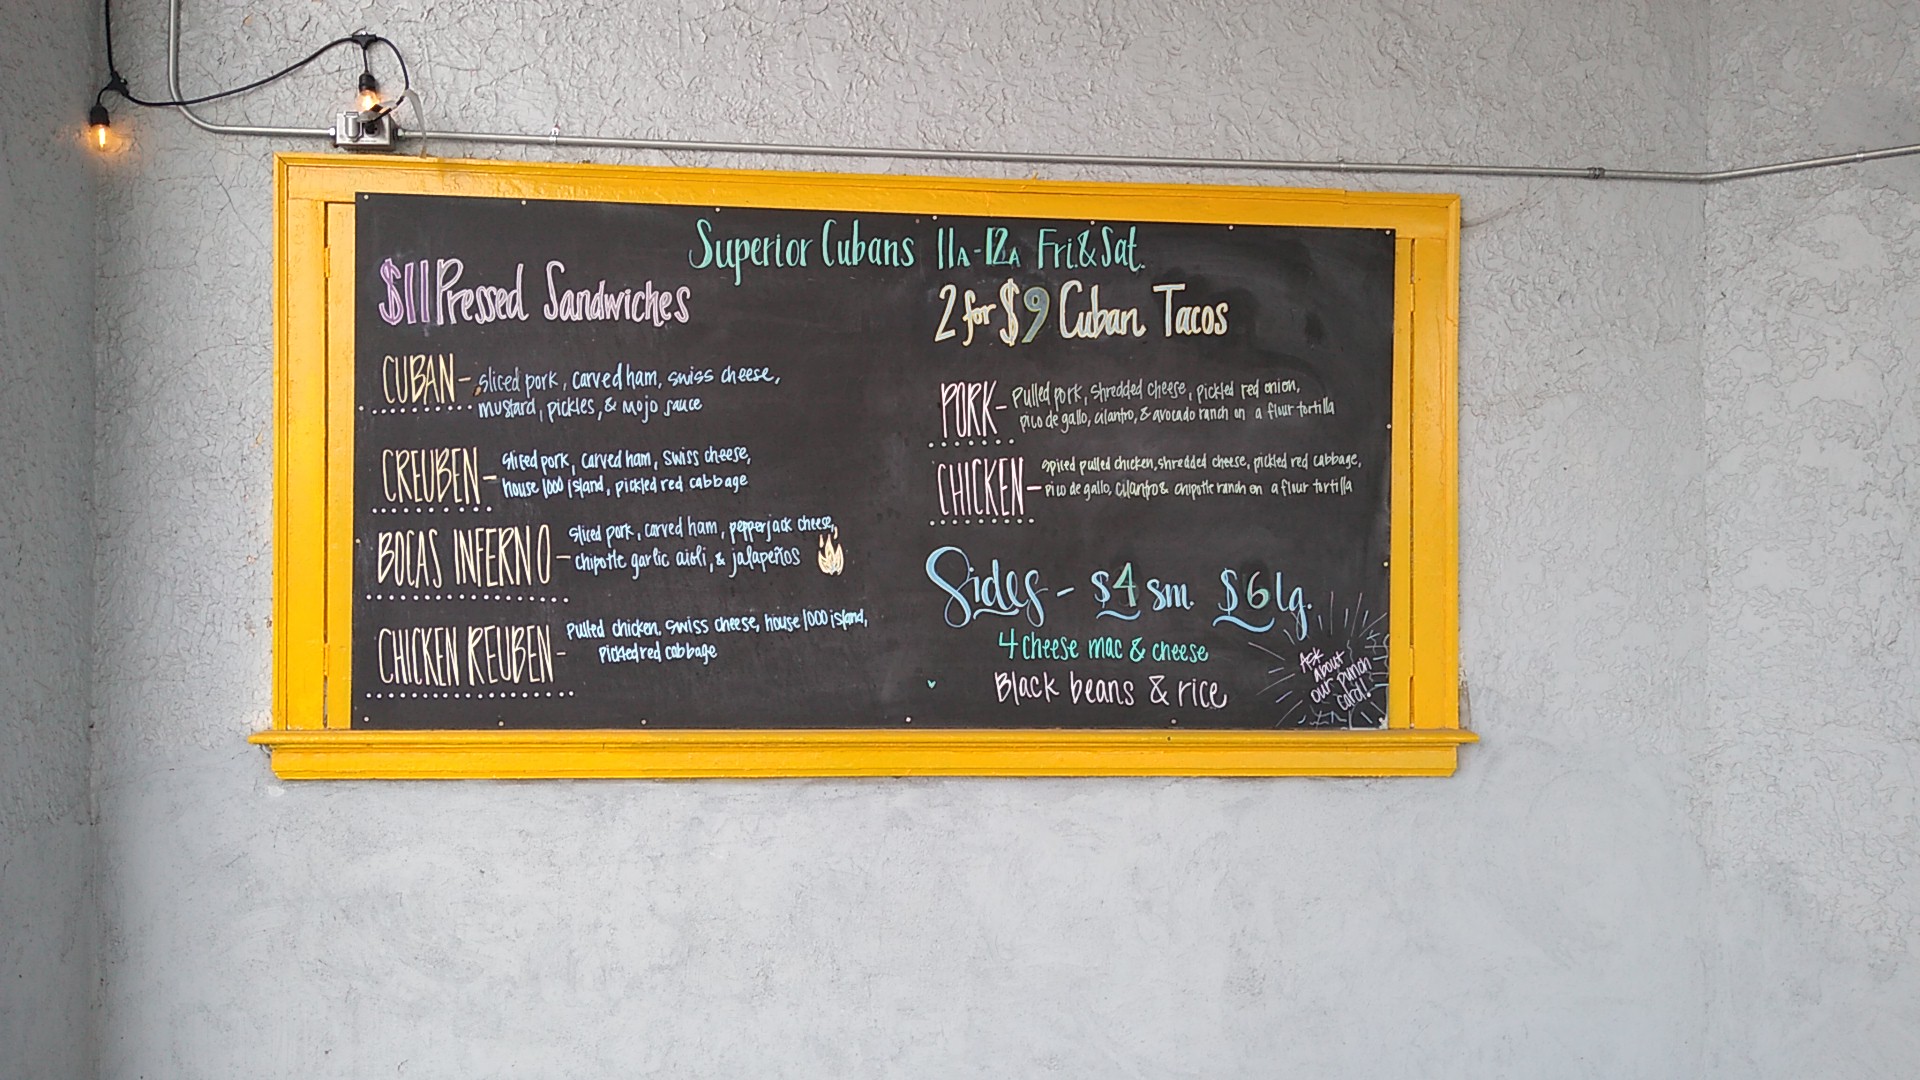 Superior Cubans 11A-12A Fri.& Sat.
$11 Pressed Sandwiches
CUBAN - sliced pork, carved ham, swiss cheese,
mustard, pickles, & mojo sauce
CREUBEN - sliced pork, carved ham, Swiss cheese,
house 1000 island, pickled red cabbage
BOCAS INFERNO - sliced pork, carved ham, pepperjack cheese,
chipotle garlic aioli, & jalapeños
CHICKEN REUBEN - Pulled chicken, swiss cheese, house 1000 island,
Pickled red cabbage
2 for $9 Cuban Tacos
PORK - Pulled pork, shredded cheese, pickled red onion,
pico de gallo, cilantro, & avocado ranch on a flour tortilla
CHICKEN - spiced pulled chicken, shredded cheese, pickled red cabbage,
pico de gallo, cilantro & chipotle ranch on a flour tortilla
Sides - $4 sm. $6 lg.
4 cheese mac & cheese
Black beans & rice
Ask
about
our punch
card!